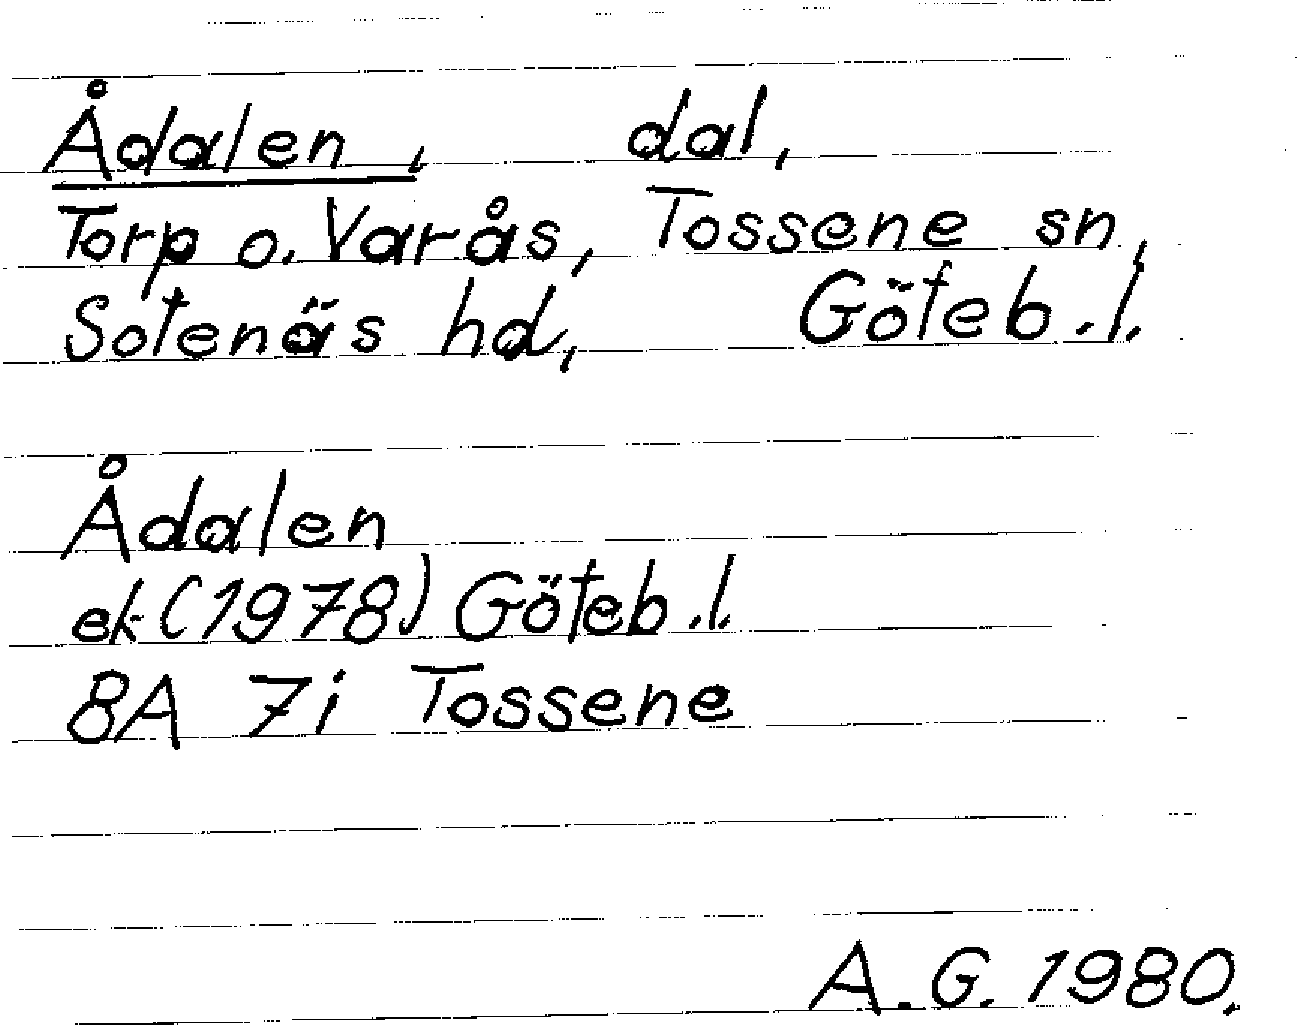 Ådalen, dal,
Torp o. Varås, Tossene sn,
Sotenäs hd, Göteb.l.
Ådalen
ek (1978) Göteb.l.
8A 7i Tossene
A.G. 1980.